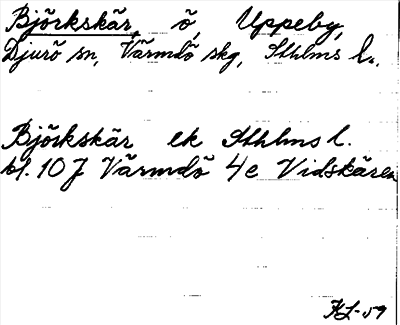 Björkskär, ö, Uppeby,
Djurö sn, Värmdö skg, Sthlms l.,
Björkskär ek Sthlms l.
bl. 10 J Värmdö 4e Vidskären
KL-59